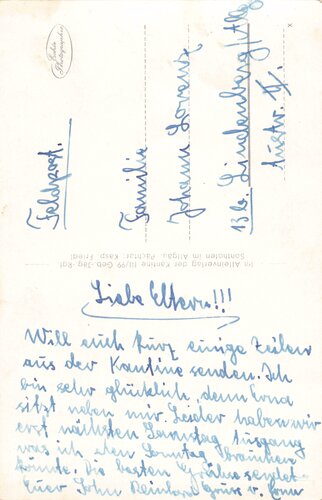 Echte Photographie
Feldpost.
Familie
Johann Lorenz
13b. Lindenberg/Allg
Austr.
Im Alleinverlag der Kantine III/99 Geb.-Jäg.-Rgt
Sonthofen im Allgäu. Pächter: Kasp. Friegl
Liebe Eltern!!!
Will euch kurz einige Zeilen
aus der Kantine senden. Ich
bin sehr glücklich, denn
sitzt neben mir. Leider haben wir
erst nächsten Samstag Ausgang
was ich den Sonntag
könnte. Die besten Grüße sendet
Euer Sohn Reinhard Grüße v.